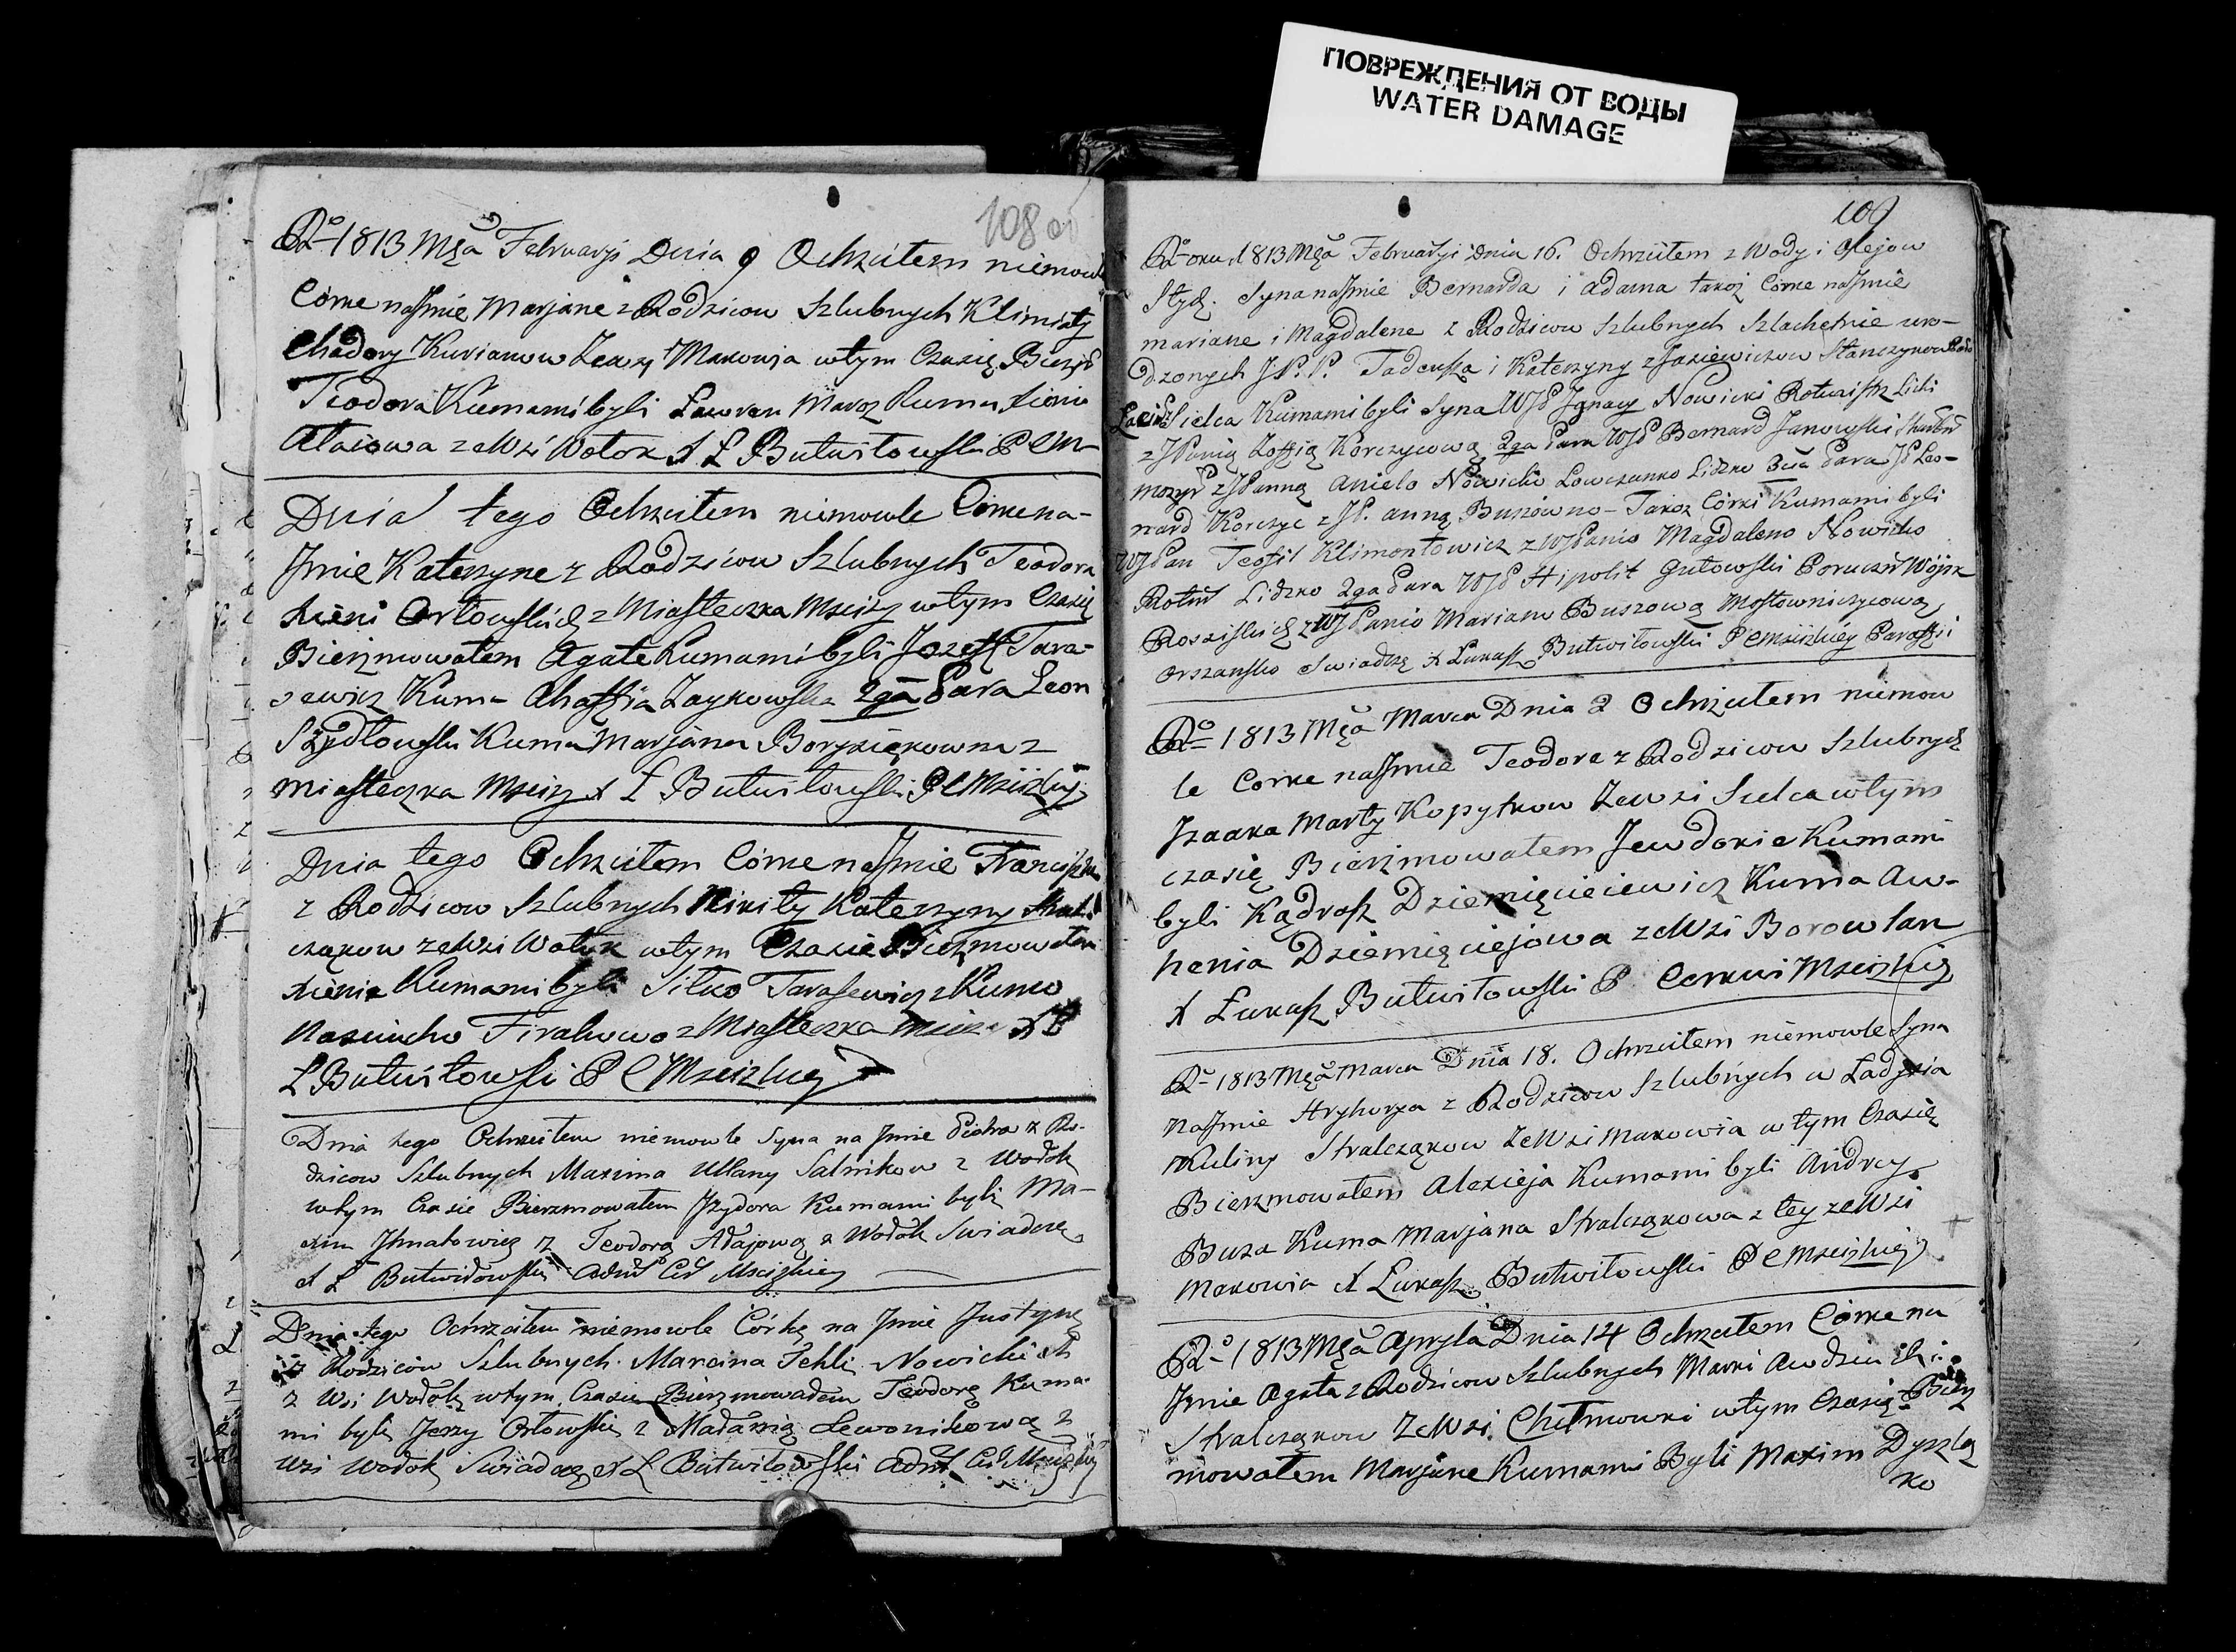 ПОВРЕЖДЕНИЯ ОТ ВОДЫ
WATER DAMAGE
108
Rº 1813 Mca Februaryi Dnia 9 Ochrzciłem niemowle
Córke na Jmie Marjane z Rodzicow Szlubnych Klimiaty
Chadory Kurianow Zewsy Makowia wtym Czasie Bierzm
Teodora Kumami byli Ławren Maroz Kuma Xienia
Ataiowa zeWsi Wołok X Ł Butwiłowski P C M
Dnia tego Ochrzciłem niemowle Córke na
Jmie Katerzyne z Rodzicow Szlubnych Teodora
Xieni Orłowskich z Miasteczka Mscizy wtym Czasie
Bierzmowałem Agate Kumami byli Jozeff Tara-
sewicz Kuma Zaykowska 2ga Para Leon
Szydłowski Kuma Marjana Borysiekowna z
miasteczka Mscizy X Ł Butwiłowski P C Mscizkiej
Dnia tego Ochrzciłem Córke na Jmie Franciszke
z Rodzicow Szlubnych Nikity Katerzyny
czakow zeWsi Wołok wtym Czasie Bierzmowałem
Xienie Kumami byli Siłko Tarasewicz z Kumo
Firahowo z Miasteczka X
Ł Butwiłowski P C Mscizkiey
Dnia tego Ochrzciłem niemowle Syna na Jmie Piotra z Ro-
dzicow Szlubnych Maxima Ullany Salnikow z Wołok
wtym Czasie Bierzmowałem Jzydora Kumami byli Ma-
xim Jhnatowicz z Teodorą Atajową z Wołok Swiadczę
X Ł Butwiłowski Adm Cer Mscizkiey
Dnia tego Ochrzciłem niemowle Córkę na Jmie Justynę
z Rodziców Szlubnych Marcina Tekli Nowickich
z Wsi Wołok wtym Czasie Bierzmowałem Teodorę Kuma-
mi byli Jerzy Orłowski z Lewonikową z
Wsi Wołok Swiadczę X Ł Butwiłowski Adm
109
Roku 1813 Mca Februaryi Dnia 16. Ochrzciłem z Wody i Olejow
Styd. Syna na Jmie Bernarda i Adama takoż Córne na Jmie
mariane i Magdalene z Rodzicow Szlubnych Szlachetnie uro-
dzonych JP. P. Tadeusza i Katerzyny z Jasiewiczow Stanczykow
Sielca Kumami byli Syna WJP Jgnacy Nowicki Rotmistrz Lidi
z JPanią Zoffią Korczycową 2ga Para WJP Bernard Janowski
Mozyr z JPanną Anielo Nowicko Łowczanko Lidzko 3cia Para JP Leo-
nard Korczyc z JP. anną Buszowno Takoż Córki Kumami byli
WJPan Teofil Klimontowicz z WJPanio Magdaleno Nowicko
Rotm Lidzko 2ga Para WJP Hipolit Gutowski Porucznik Wojsk
Rossiskich z WJPanio Mariano Buszową Mostowniczycową
Orszansko Swiadczę X Łukasz Butwiłowski P C Mscizkiey Paraffii
Rº 1813 Mca Marca Dnia 2 Ochrzciłem niemow
le Corke na Jmie Teodore z Rodzicow Szlubnych
Jzaaka Marty Kopytkow Zewsi Sielca wtym
czasie Bierzmowałem Jewdokie Kumami
byli Kądrasz Dziemięciewicz Kuma Aw-
henia Dziemięciejowa zeWsi Borowlan
X Łukasz Butwiłowski P Cerkwi Mscizkiey
Rº 1813 Mca Marca Dnia 18. Ochrzciłem niemowle Syna
na Jmie Hryhorya z Rodzicow Szlubnych w Ładysia
Kuliny Stralcząkow zeWsi Makowia w tym Czasie
Bierzmowałem Alexieja Kumami byli Andrey
Buza Kuma Marjana Stralcząkowa z tey zeWsi
Makowia X Łukasz Butwiłowski P C Mscizkiey
Rº 1813 Mca Apryla Dnia 14 Ochrzciłem Córke na
Jmie Agata z Rodzicow Szlubnych Marki
Stralcząkow ZeWsi Chełmowki wtym Czasie Bierz
mowałem Marjane Kumami Byli Maxim Dyszle
ko